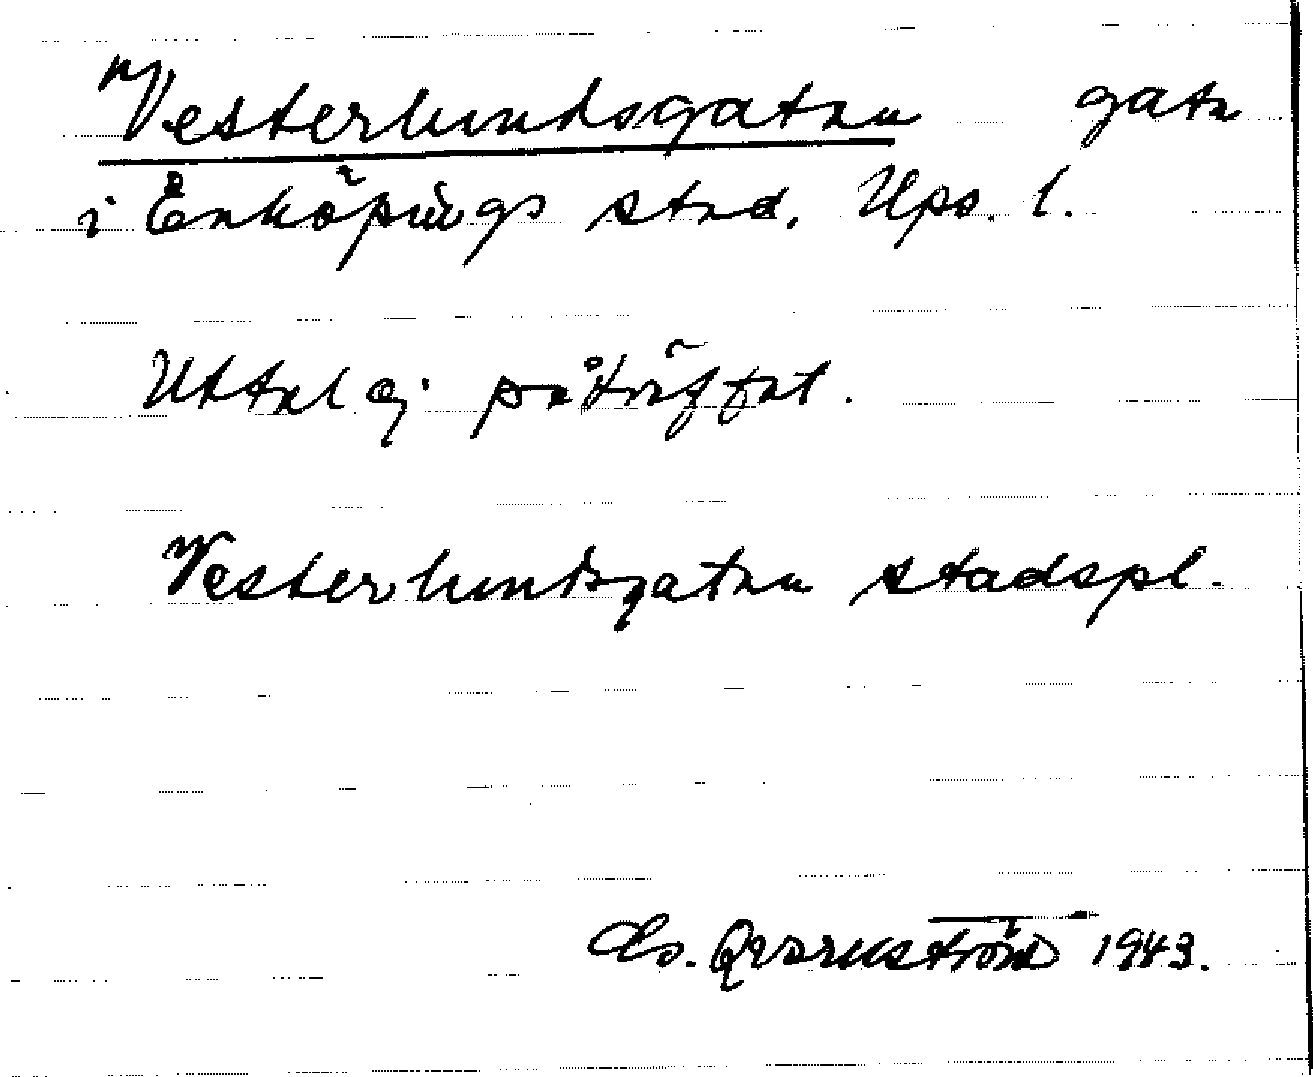 Vesterlundsgatan gata
i Enköpings stad, Ups. l.
Uttal ej påträffat.
Vesterlundsgatan stadspl.
Qvarnström 1943.